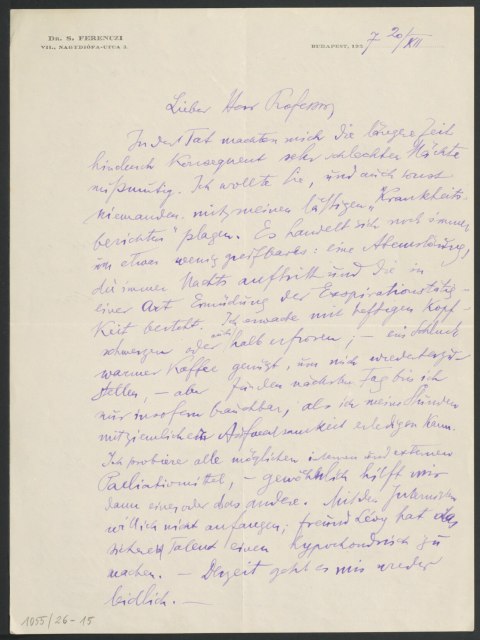 Dr. S. FERENCZI
VII., NAGYDIÓFA-UTCA 3.
BUDAPEST, 192 7 20/XII
Lieber Herr Professor,
In der Tat machten mich die längere Zeit
hindurch konsequent sehr schlechten Nächte
mißmutig. Ich wollte Sie, und auch sonst
niemanden, mit meinen lästigen „Krankheits-
berichten" plagen. Es handelt sich noch immer
um etwas wenig greifbares: eine Atemstörung,
die immer Nachts auftritt und die in
einer Art Ermüdung der Exspirationstätig-
keit besteht. Ich erwache mit heftigen Kopf-
schmerzen oder auch halb erfroren; – ein Schluck
warmer Kaffee genügt, um mich wiederherzu-
stellen, – aber für den nächsten Tag bin ich
nur insofern brauchbar, als ich meine Stunden
mit ziemlicher Aufmerksamkeit erledigen kann.
Ich probiere alle möglichen internen und externen
Palliativmittel, – gewöhnlich hilft mir
dann eines oder das andere. Mit den Internisten
will ich nicht anfangen; freund Lévy hat das
sichere Talent einen hypochondrisch zu
machen. – Derzeit geht es mir wieder
leidlich. –
1055/26-15